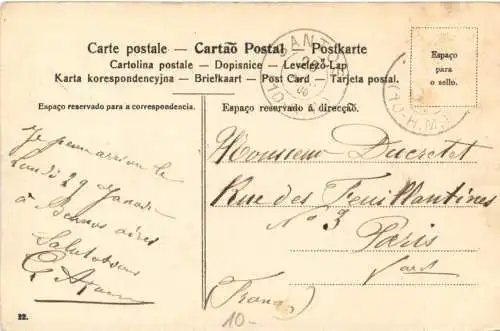 Carte postale — Cartaõ Postal — Postkarte
Cartolina postale — Dopisnice — Levelező-Lap
Karta korespondencyjna — Briefkaart — Post Card — Tarjeta postal.
Espaço
para
o sello.
Espaço reservado para a correspondencia.
Espaço reservado á direcção.
SANTOS
Je pense arriver le
Lundi 29 Janvier
à Buenos aires
Salutations
Monsieur Ducretet
Rue des Feuillantines
No 3
Paris
(France)
10-
22.